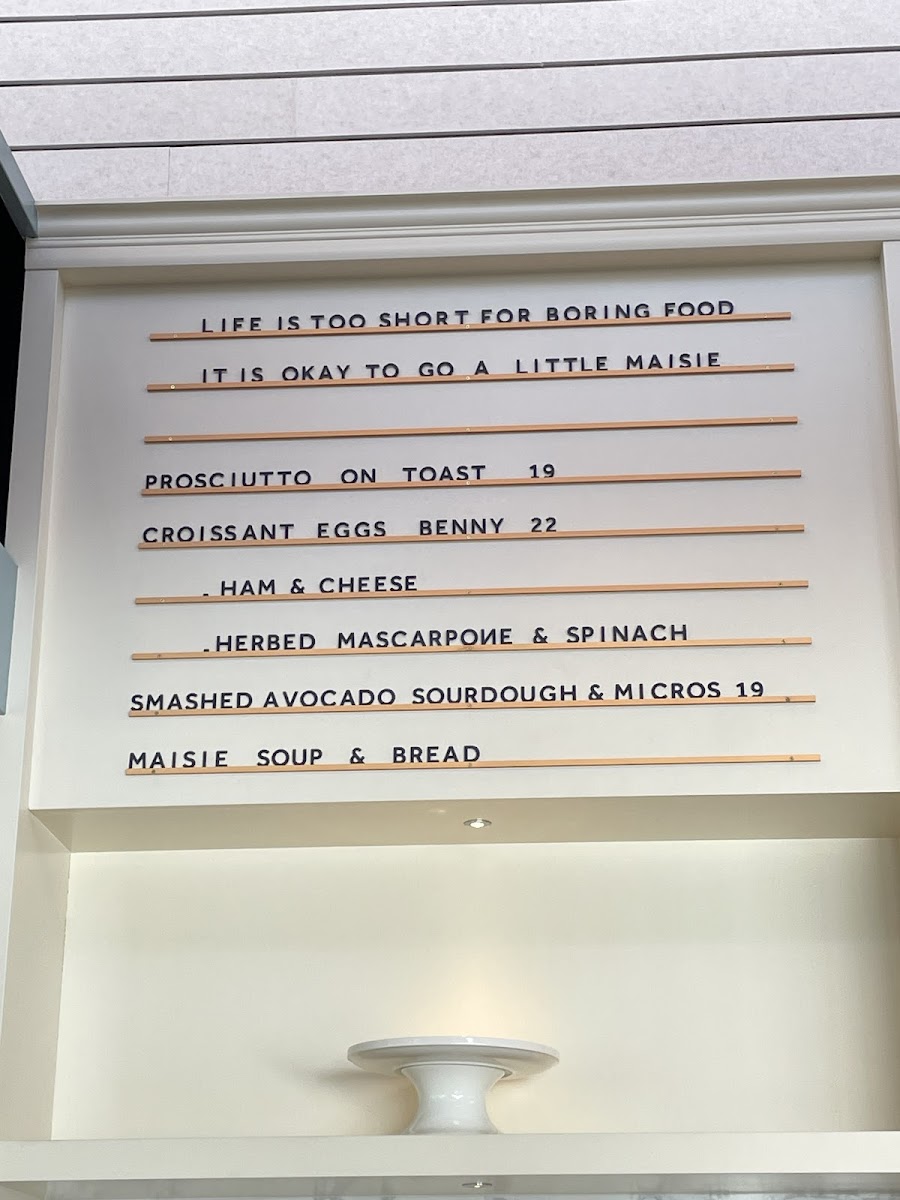 LIFE IS TOO SHORT FOR BORING FOOD
IT IS OKAY TO GO A LITTLE MAISIE
PROSCIUTTO ON TOAST 19
CROISSANT EGGS BENNY 22
- HAM & CHEESE
- HERBED MASCARPONE & SPINACH
SMASHED AVOCADO SOURDOUGH & MICROS 19
MAISIE SOUP & BREAD